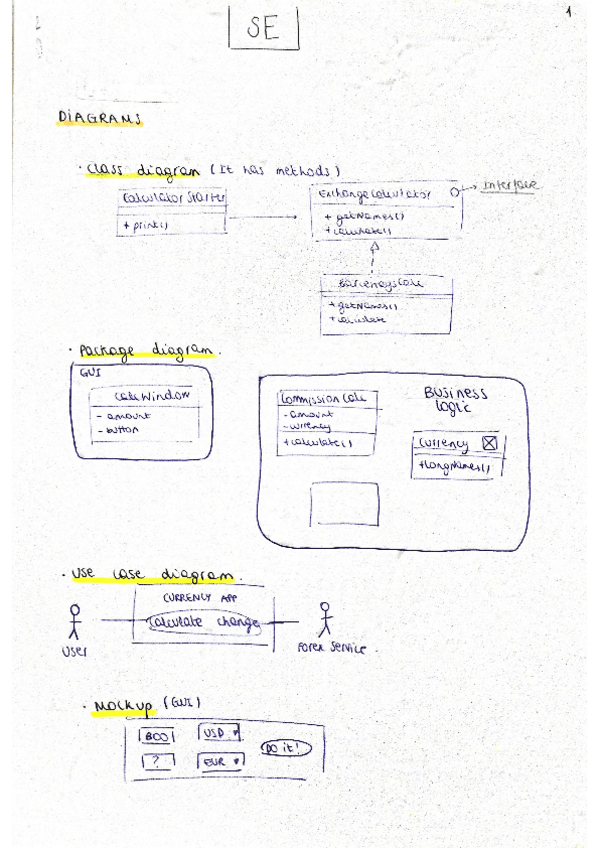 1
SE
DIAGRAMS
· Class diagram (It has methods)
CalculatorStarter
+ print()
ExchangeCalculator
+ getNames()
+ calculate()
Interface
+ getNames()
+ calculate
· Package diagram.
GUI
CalcWindow
- amount
- button
CommissionCalc
- amount
- currency
+ calculate()
Business
Logic
Currency
+ LongNames()
· Use case diagram.
CURRENCY APP
Calculate change
User
Forex Service.
· Mockup (GUI)
800
USD
Do it!
?
EUR